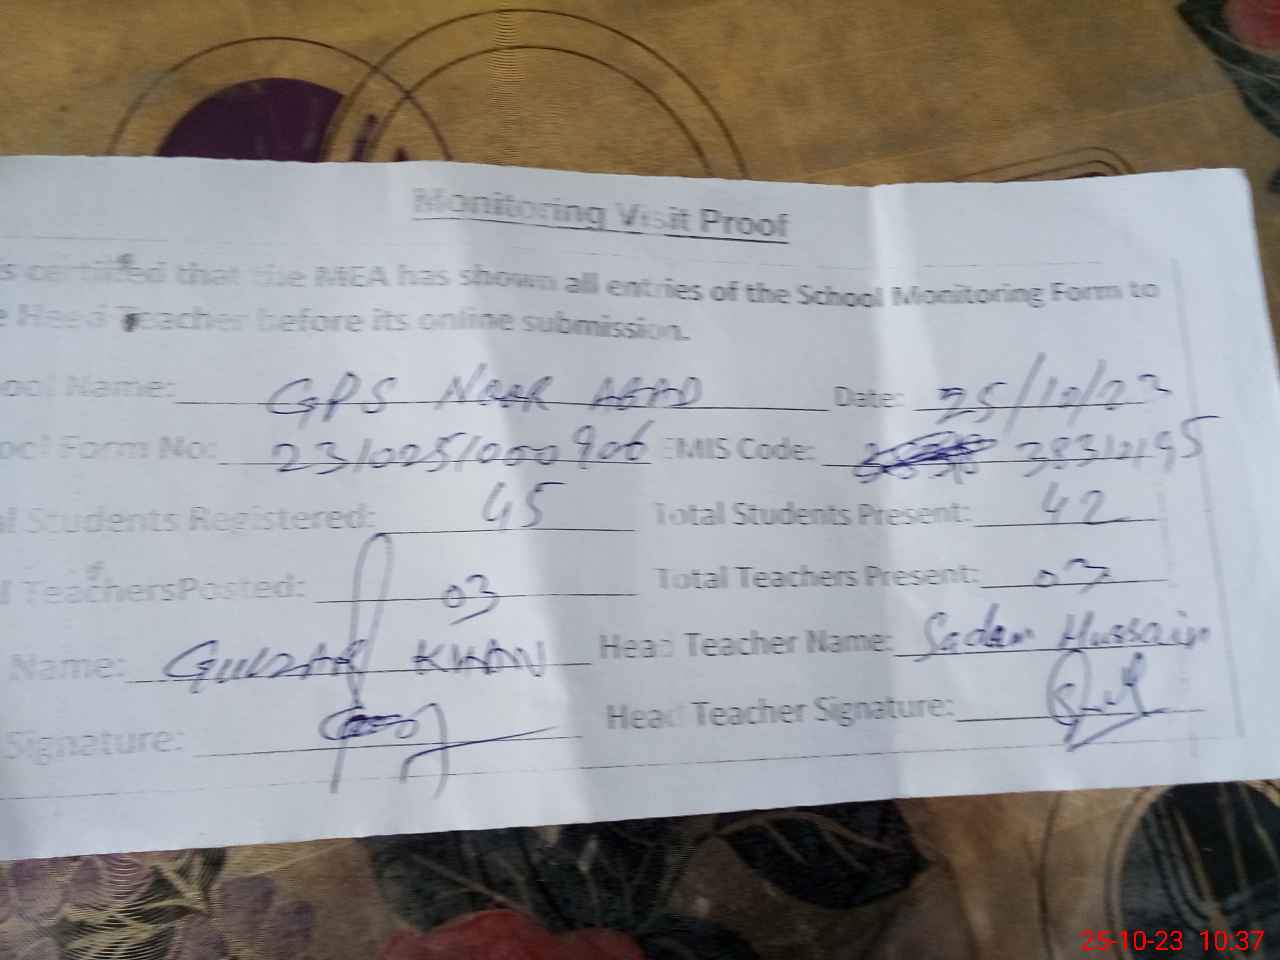 Monitoring Visit Proof
s certified that the MEA has shown all entries of the School Monitoring Form to
e Head Teacher before its online submission.
ool Name: GPS NOOR ABAD Date: 25/10/23
ool Form No: 2310251000906 EMIS Code: 38312195
al Students Registered: 45 Total Students Present: 42
l TeachersPosted: 03 Total Teachers Present: 03
Name: GULZAR KHAN Head Teacher Name: Sadam Hussain
Signature: Head Teacher Signature:
25-10-23 10:37